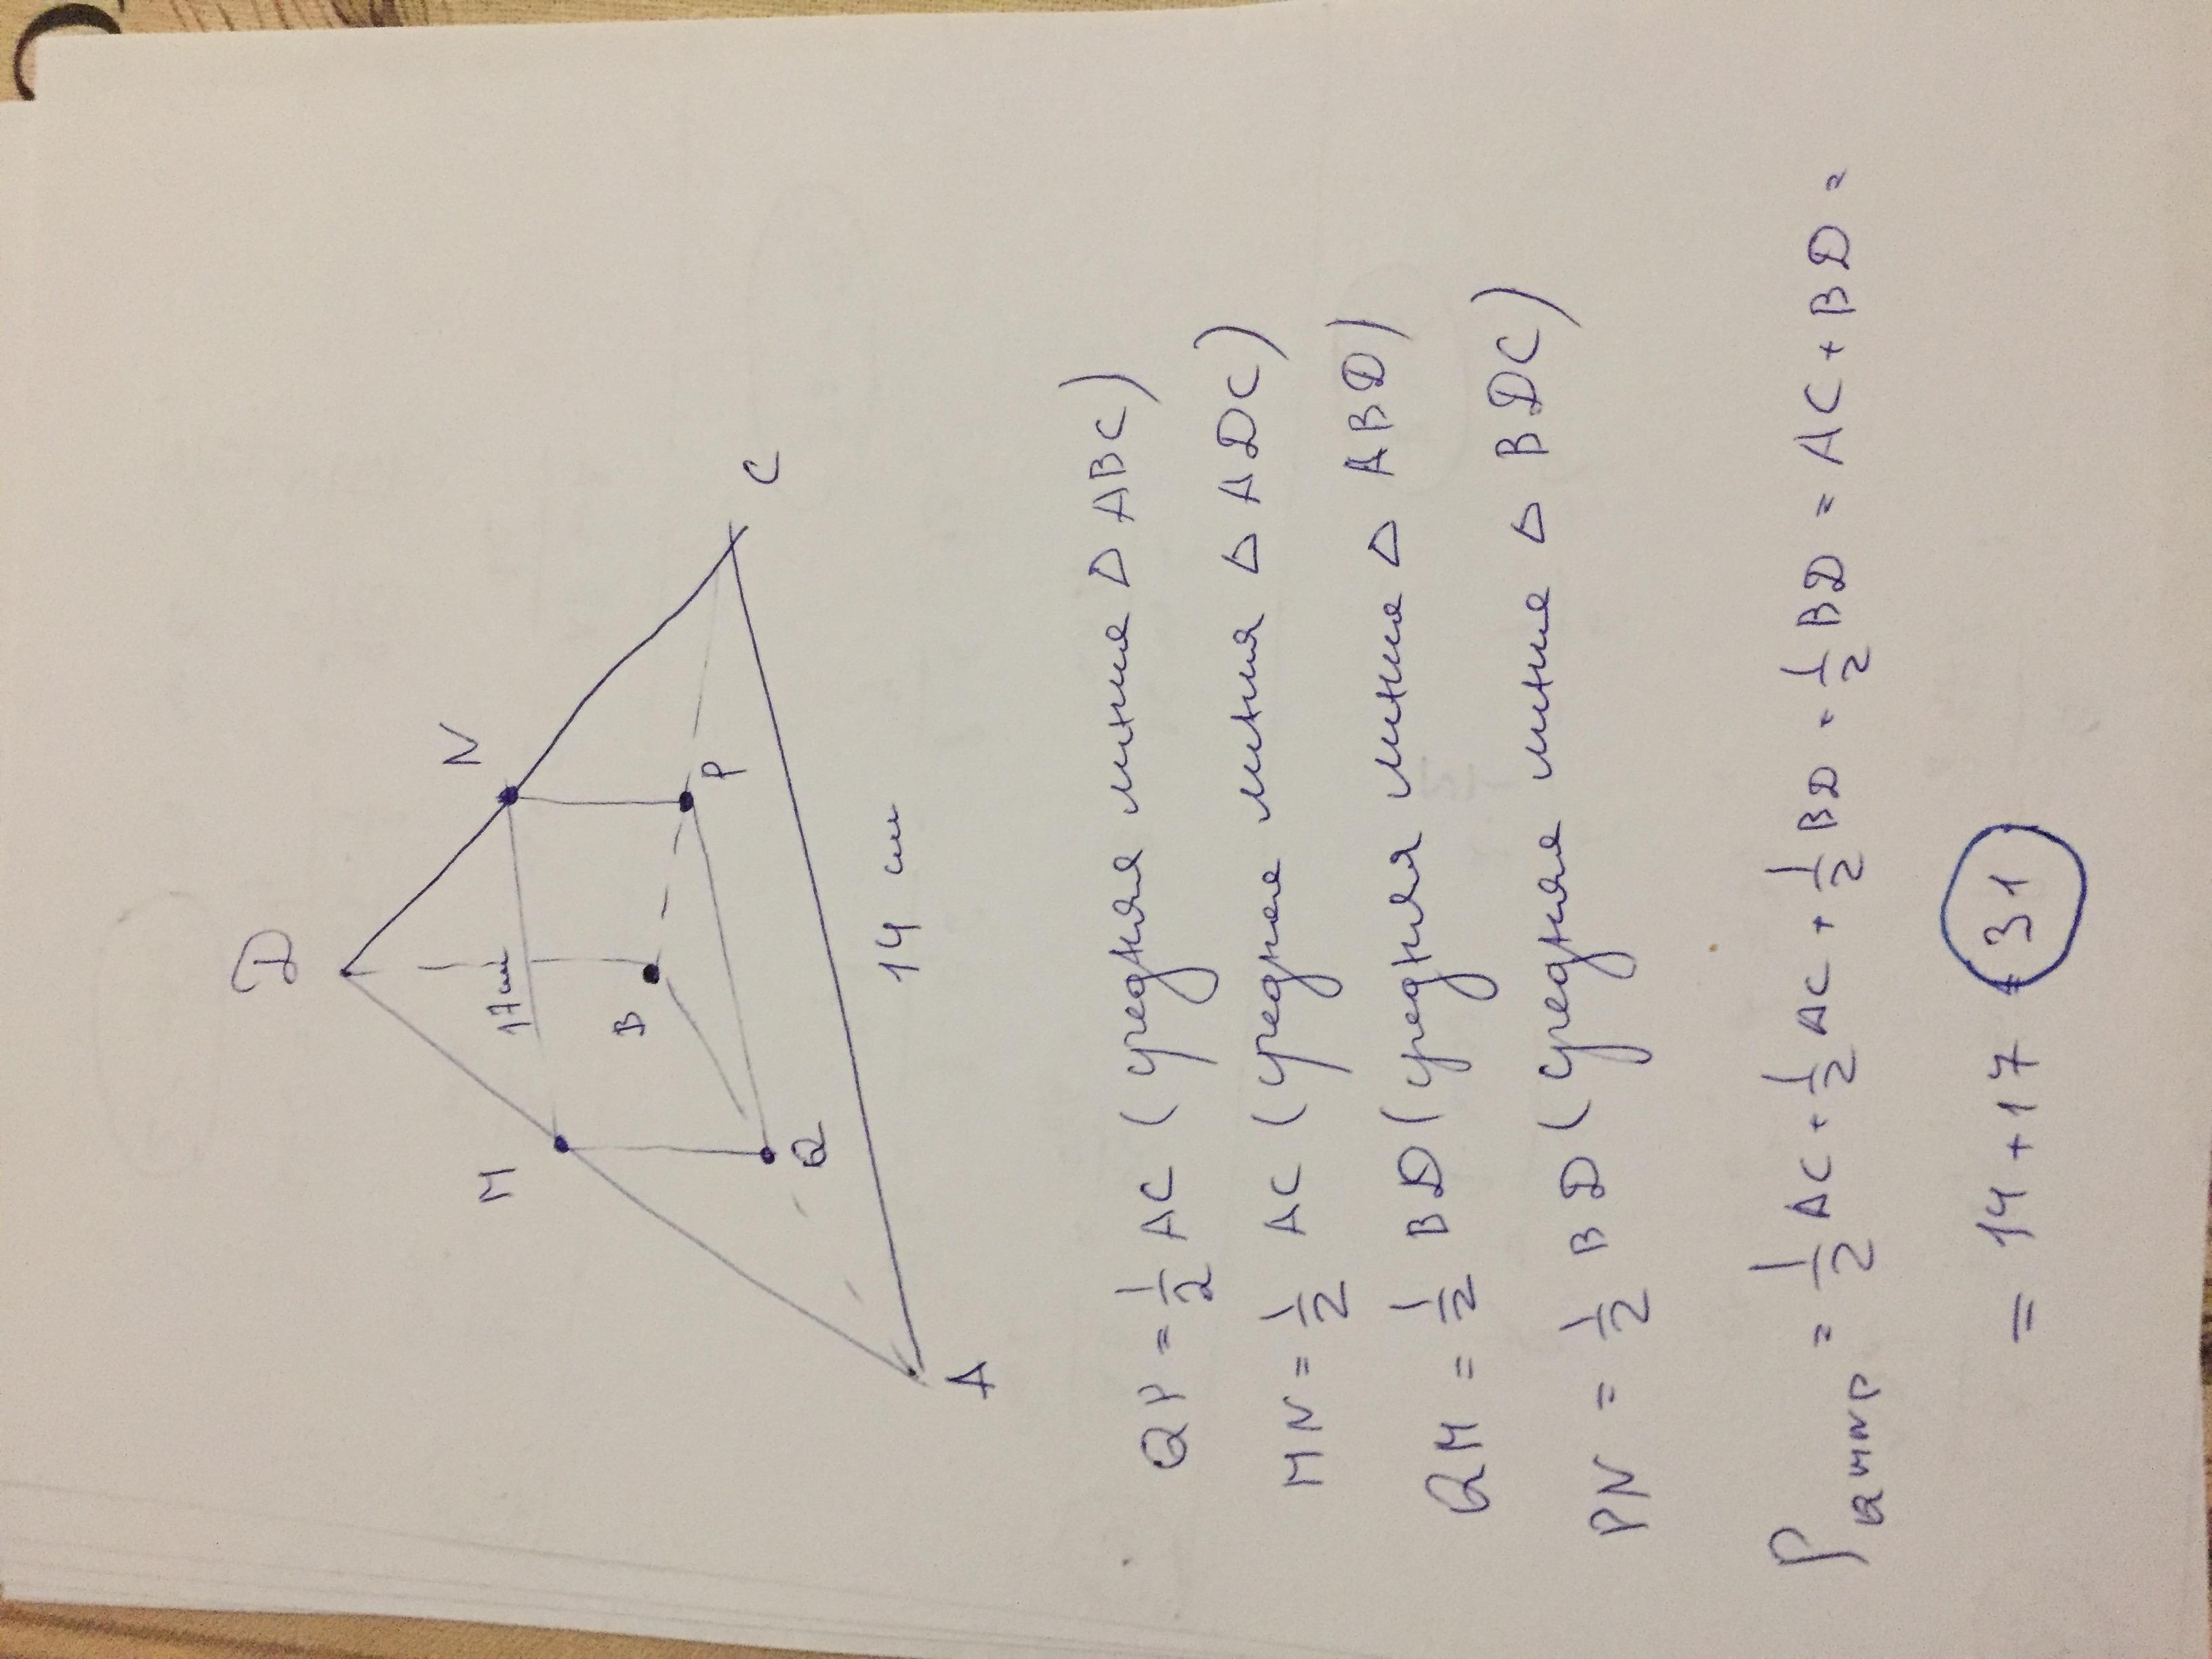 D
N
M
17 см
B
P
Q
C
A
14 см
QP = 1/2 AC (средняя линия △ ABC)
MN = 1/2 AC (средняя линия △ ADC)
QM = 1/2 BD (средняя линия △ ABD)
PN = 1/2 BD (средняя линия △ BDC)
P QMNP = 1/2 AC + 1/2 AC + 1/2 BD + 1/2 BD = AC + BD =
= 14 + 17 = 31